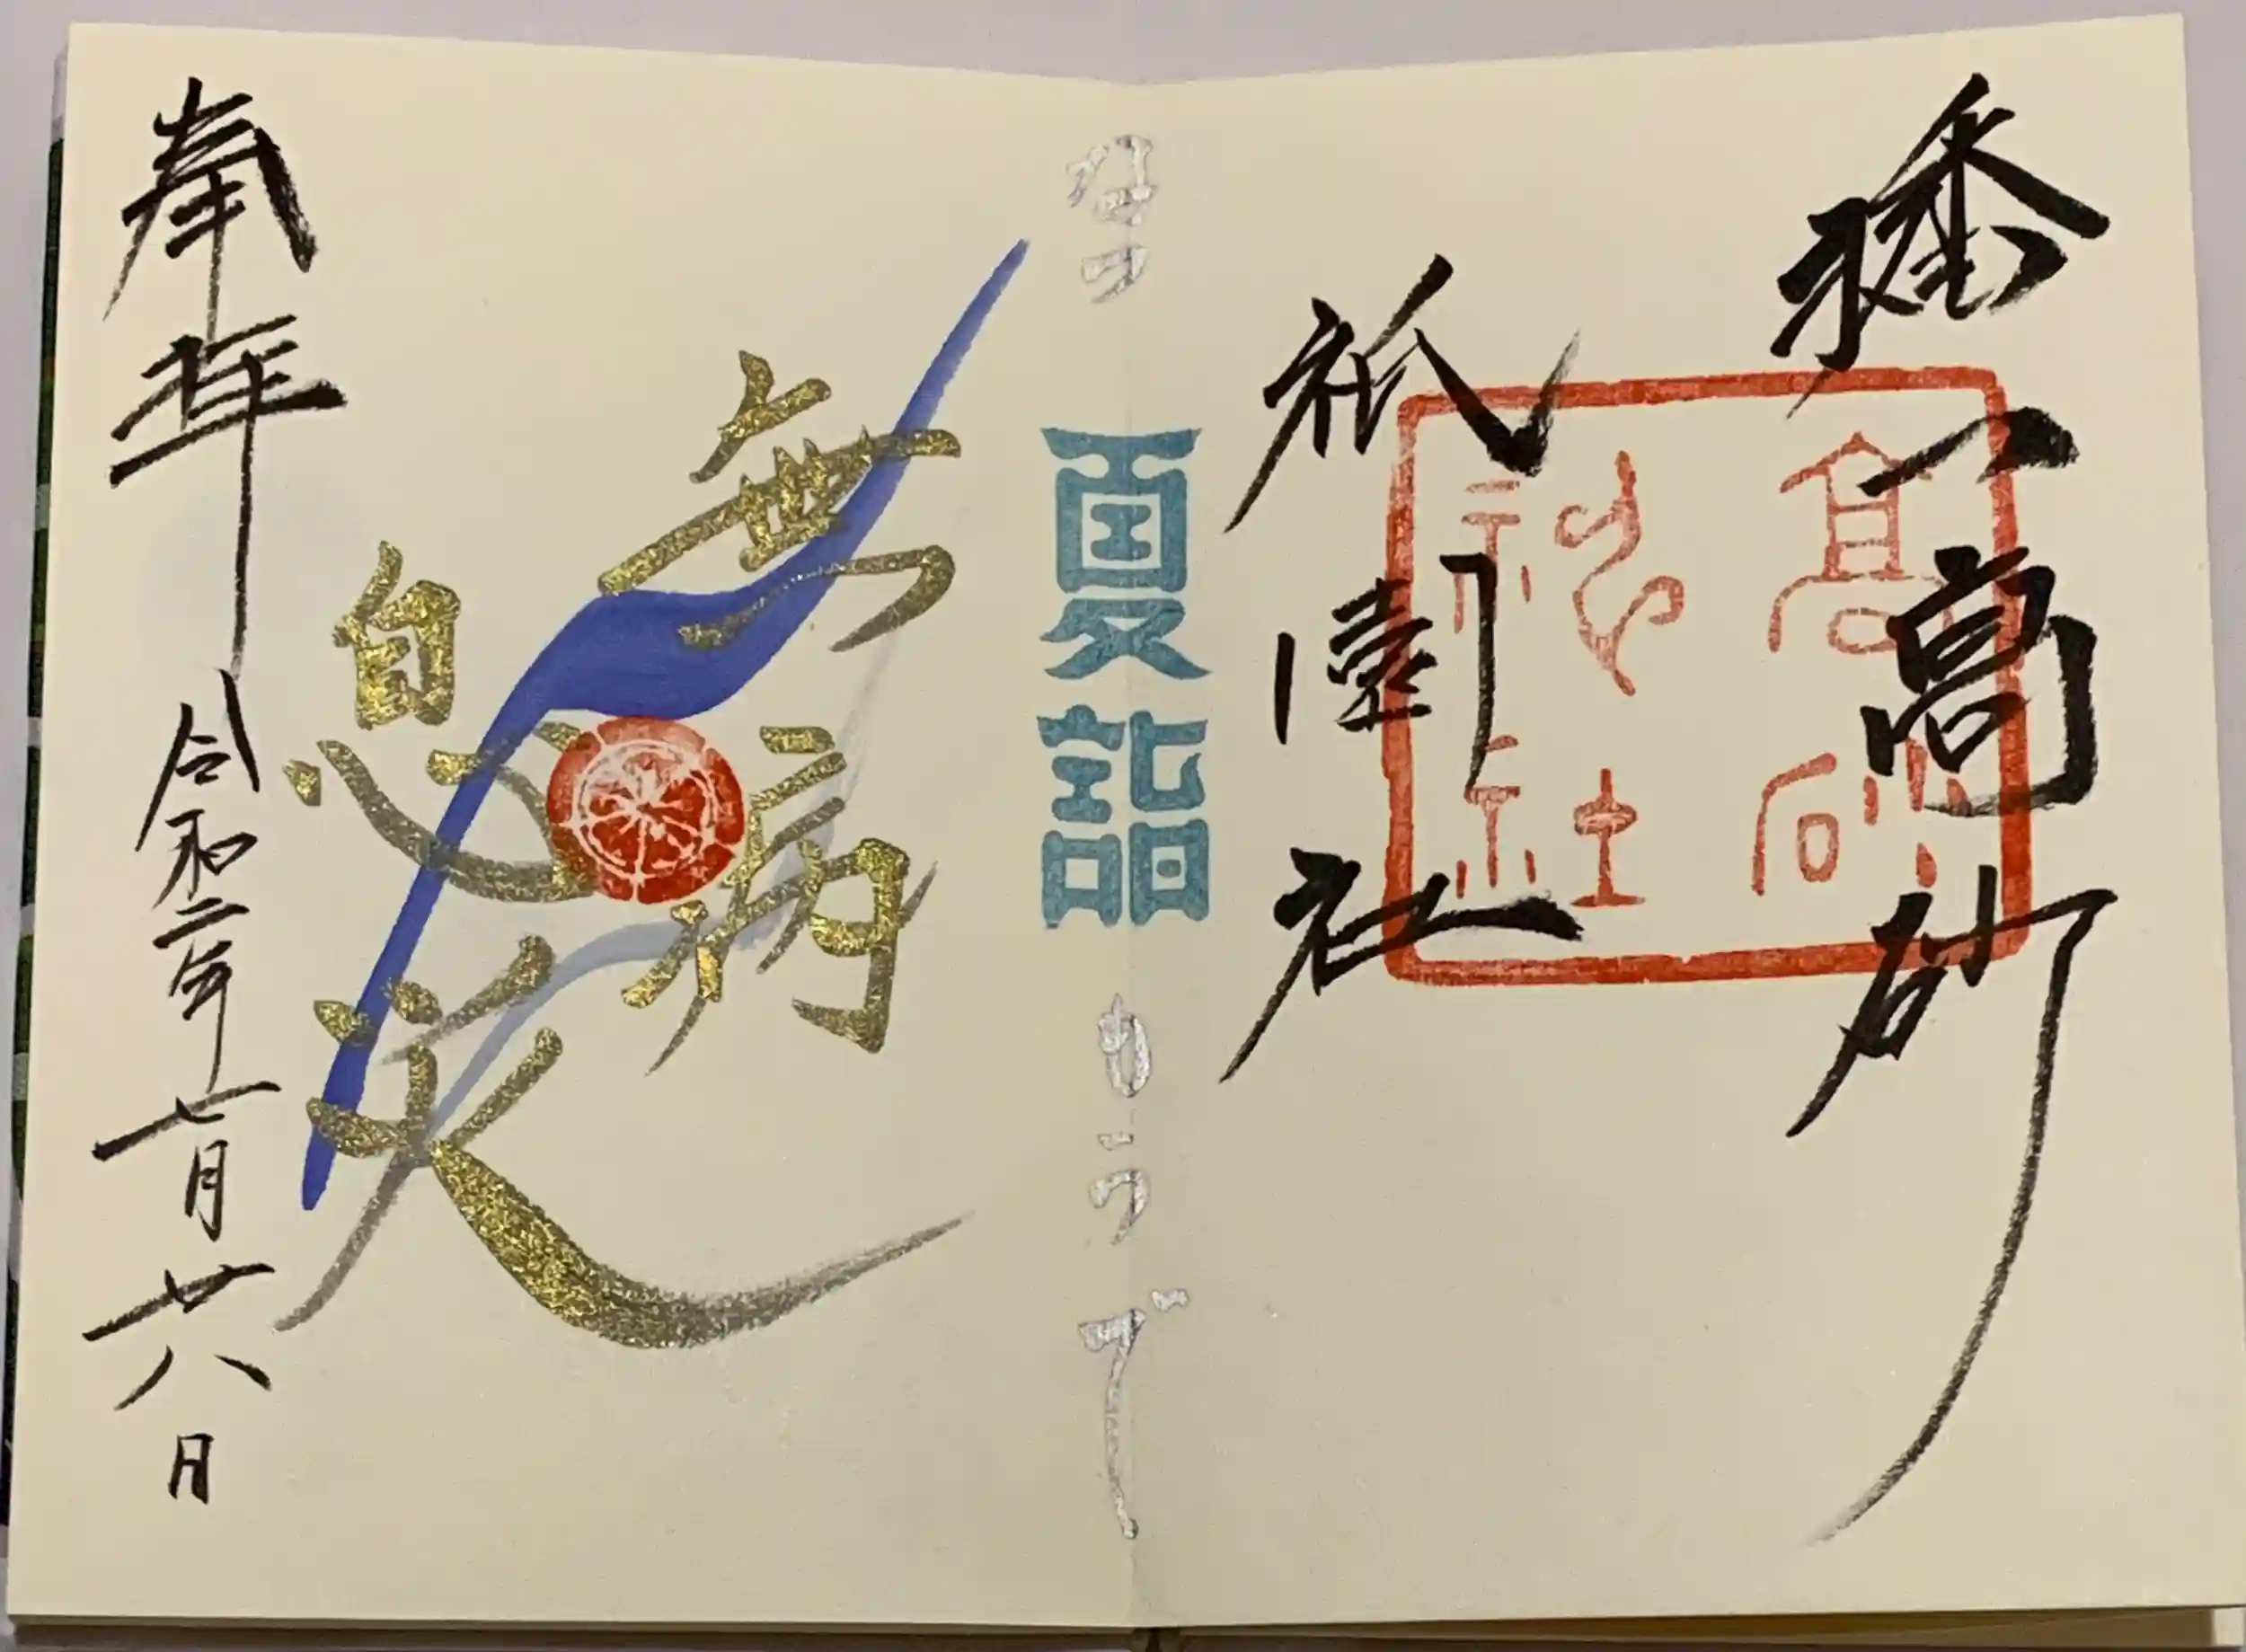 播
高砂
祇園社
高砂
神社
なつ
夏詣
もうで
無病
息災
奉拝
令和二年七月廿八日